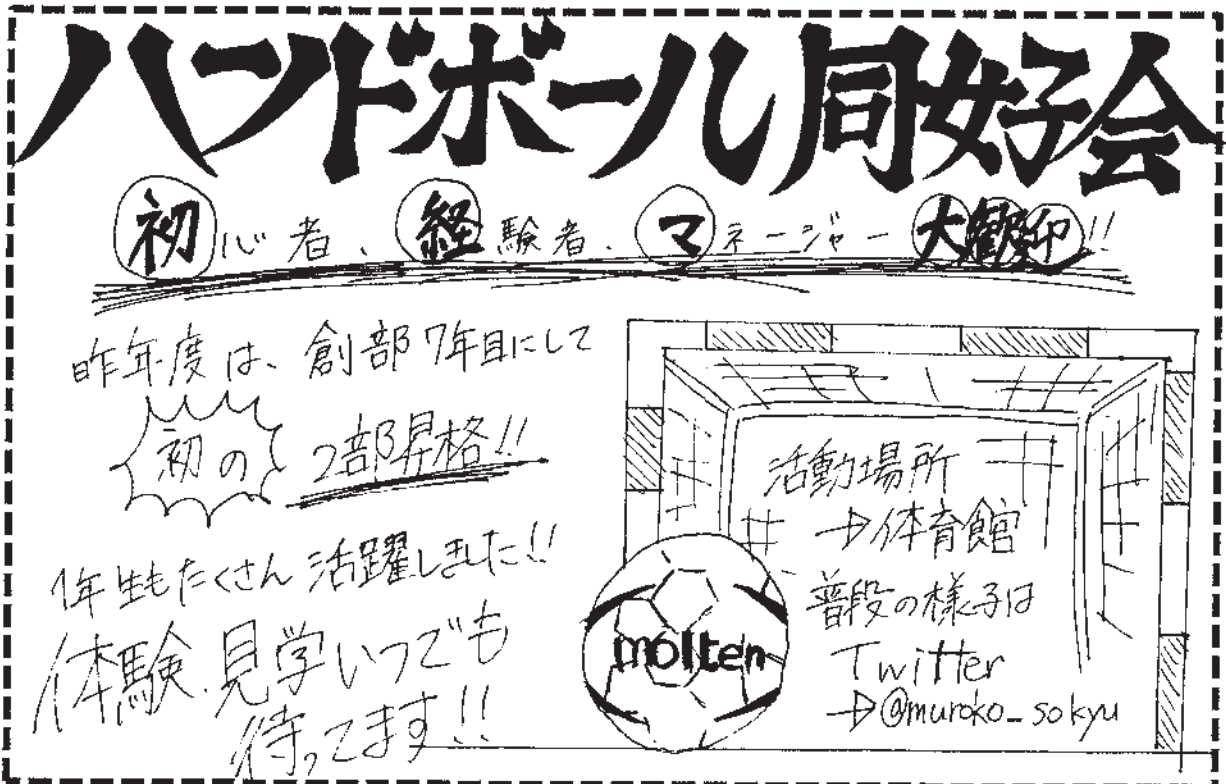 ハンドボール同好会
初心者、経験者、マネージャー大歓迎!!
昨年度は、創部7年目にして
初の2部昇格!!
1年生もたくさん活躍しました!!
体験、見学いつでも
待ってます!!
molten
活動場所
→体育館
普段の様子は
Twitter
→@muroko_sokyu